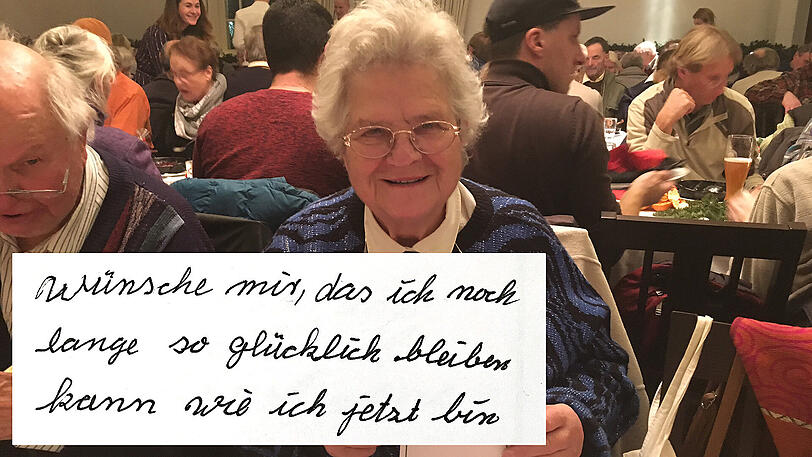 wünsche mir, das ich noch
lange so glücklich bleiben
kann wie ich jetzt bin